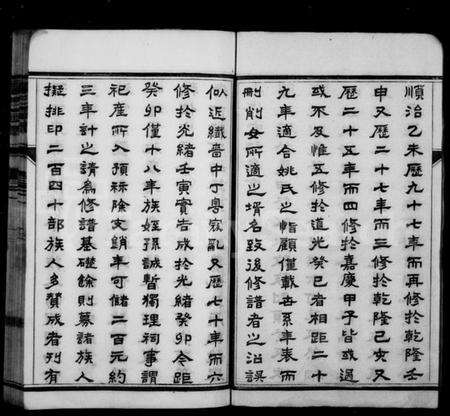 順治乙未歷九十七年而再修於乾隆壬
申又歷二十七年而三修於乾隆己亥又
歷二十五年而四修於嘉慶甲子皆或過
或不及惟五修於道光癸巳者相距二十
九年適合姚氏之顧僅載世系年表而
刪削女所適之壻名致後修譜者之沿誤
似近纖嗇中丁粵寇亂又歷七十年而六
修於光緒壬寅實告成於光緒癸卯今距
癸卯僅十八年族姪孫誠暫獨理祠事謂
祀產所入預祘除支銷年可儲二百元約
三年計之請為修譜基礎餘則募諸族人
擬排印二百四十部族人多贊成者列有